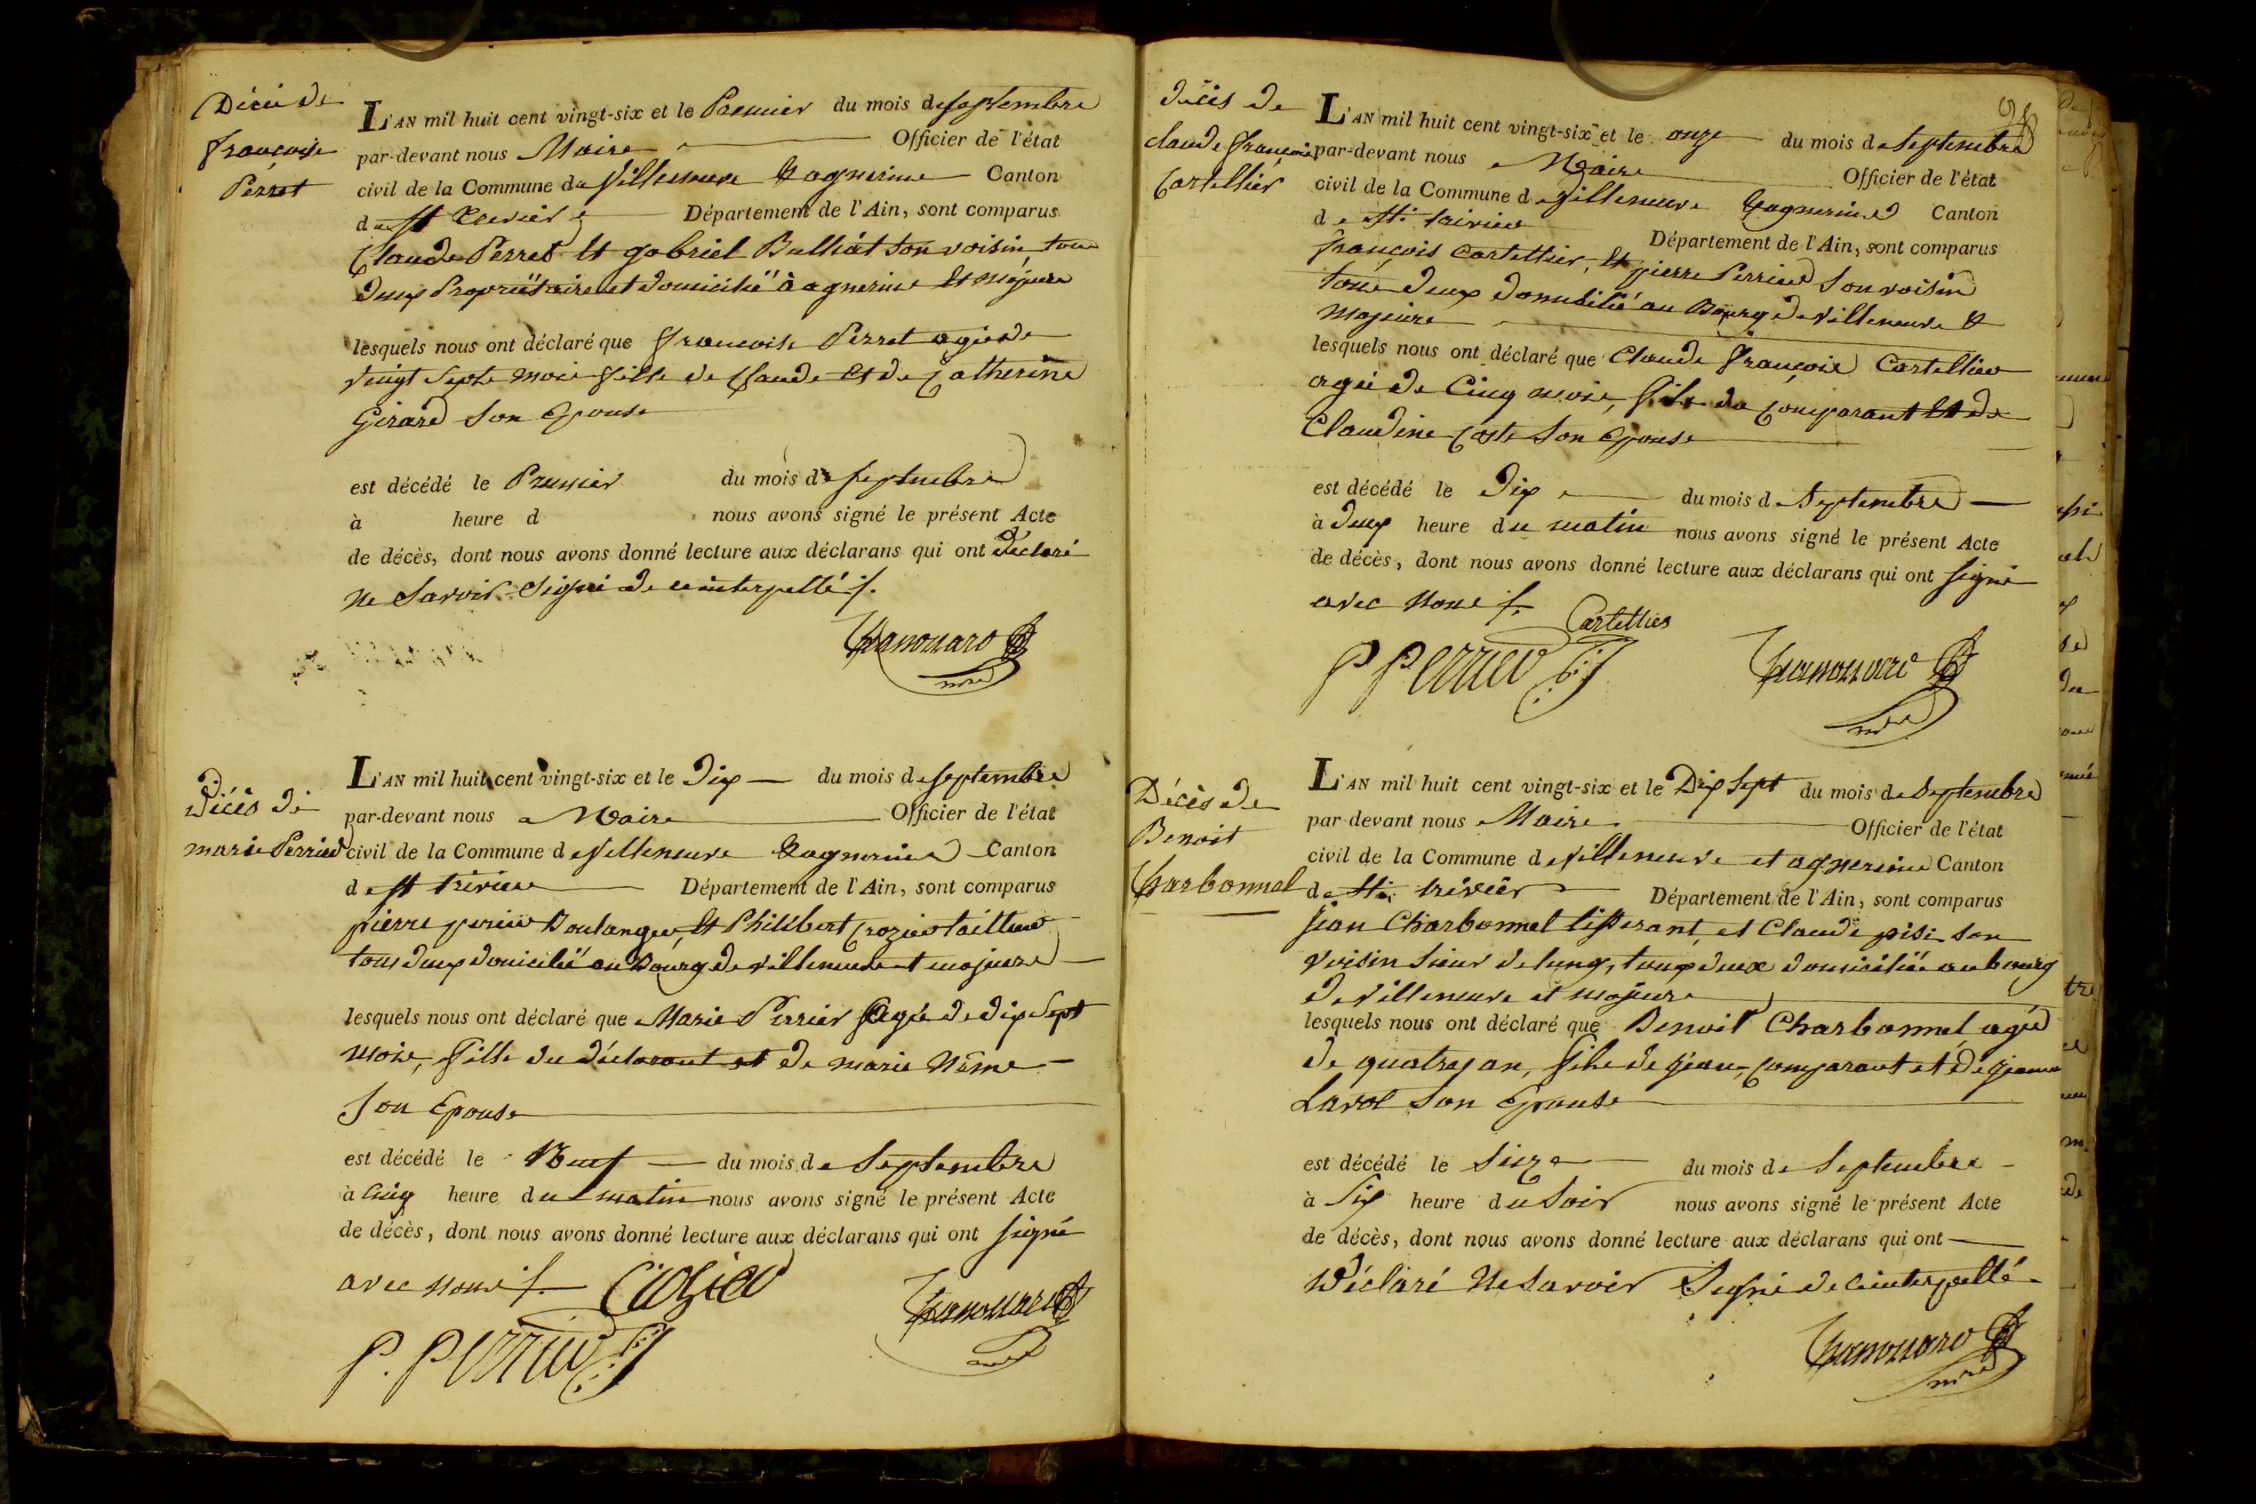 Décès de
françoise
Perret
L'AN mil huit cent vingt-six et le Premier du mois de septembre
par-devant nous Maire Officier de l'état
civil de la Commune de Villeneuve & agnerins Canton
de St trivier Département de l'Ain, sont comparus
Claude Perret et gabriel Balliat son voisin, tous
deux Propriétaire et domicilié à agnerins et majeurs
lesquels nous ont déclaré que françoise Perret agée de
vingt septe mois fille de Claude et de Catherine
Girard son Epouse
est décédé le Premier du mois de septembre
à heure d nous avons signé le présent Acte
de décès, dont nous avons donné lecture aux déclarans qui ont déclaré
ne savoir signé de ce interpellé
Décès de
marie Perrier
L'AN mil huit cent vingt-six et le Dix du mois de septembre
par-devant nous Maire Officier de l'état
civil de la Commune de Villeneuve & agnerins Canton
de St trivier Département de l'Ain, sont comparus
pierre perrier Boulanger, et Philibert Crozier tailleur
tous deux domicilié au Bourg de villeneuve et majeurs
lesquels nous ont déclaré que Marie Perrier agée de dix sept
mois, fille du déclarant et de marie Nême
son Epouse
est décédé le Neuf du mois de Septembre
à cinq heure du matin nous avons signé le présent Acte
de décès, dont nous avons donné lecture aux déclarans qui ont signé
avec nous
P. Perrier
décès de
claude françois
Cartellier
L'AN mil huit cent vingt-six et le onze du mois de septembre
par-devant nous Maire Officier de l'état
civil de la Commune de Villeneuve & agnerins Canton
de St trivier Département de l'Ain, sont comparus
françois Cartellier, et pierre Perrier son voisin
tous deux domicilié au Bourg de villeneuve &
majeurs
lesquels nous ont déclaré que Claude françois Cartellier
agé de Cinq mois, fils du Comparant et de
Claudine Coste son Epouse
est décédé le Dix du mois de Septembre
à deux heure du matin nous avons signé le présent Acte
de décès, dont nous avons donné lecture aux déclarans qui ont signé
avec nous
Cartellier
P Perrier
Décès de
Benoit
Charbonnel
L'AN mil huit cent vingt-six et le Dix Sept du mois de Septembre
par-devant nous Maire Officier de l'état
civil de la Commune de villeneuve et agnerins Canton
de St trivier Département de l'Ain, sont comparus
jean Charbonnel tisserant, et Claude pisi son
voisin sieur de lung, tous deux domicilié au bourg
de villeneuve et majeurs
lesquels nous ont déclaré que Benoit Charbonnel, agé
de quatre an, fils de jean, Comparant et de jeanne
Larol son Epouse
est décédé le Sieze du mois de Septembre
à Six heure du Soir nous avons signé le présent Acte
de décès, dont nous avons donné lecture aux déclarans qui ont
Déclaré ne savoir Signé de ce interpellé